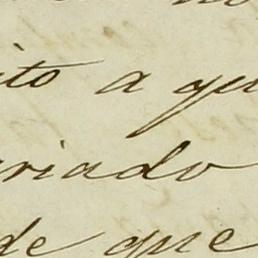 ito a qu
riado
de que